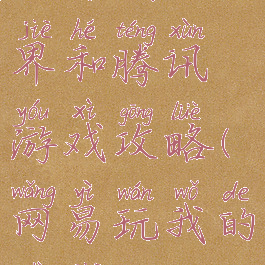 jiè hé téng xùn
界和腾讯
yóu xì gōng lüè
游戏攻略(
wǎng yì wán wǒ de
网易玩我的